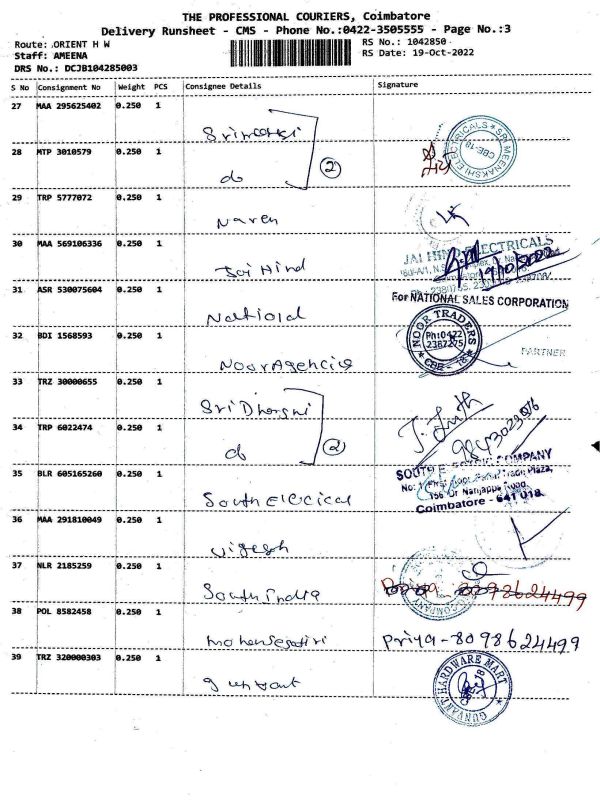 THE PROFESSIONAL COURIERS, Coimbatore
Delivery Runsheet - CMS - Phone No.:0422-3505555 - Page No.:3
Route: ORIENT H W
Staff: AMEENA
DRS No.: DCJB104285003
RS No.: 1042850
RS Date: 19-Oct-2022
S No Consignment No Weight PCS Consignee Details Signature
27 MAA 295625402 0.250 1
SRI MEENAKSHI ELECTRICALS
CBE-18
28 MTP 3010579 0.250 1 do
②
29 TRP 5777072 0.250 1 Naren
30 MAA 569106336 0.250 1 Jai Hind
JAI HIND ELECTRICALS
19/10/2022
31 ASR 530075604 0.250 1 National
For NATIONAL SALES CORPORATION
PARTNER
32 BDI 1568593 0.250 1 Noor Agencies
NOOR TRADERS
Ph:0422
2387275
CBE - 18
33 TRZ 30000655 0.250 1 Sri Dharani
34 TRP 6022474 0.250 1 do
②
35 BLR 605165260 0.250 1 South Electrical
COMPANY
156 Dr Nanjappa Road,
Coimbatore - 641 018
36 MAA 291810049 0.250 1 Vigesh
37 NLR 2185259 0.250 1 South india
COMPANY
38 POL 8582458 0.250 1
Priya - 8098624499
39 TRZ 320000303 0.250 1 gunvant
GUNVANT HARDWARE MART